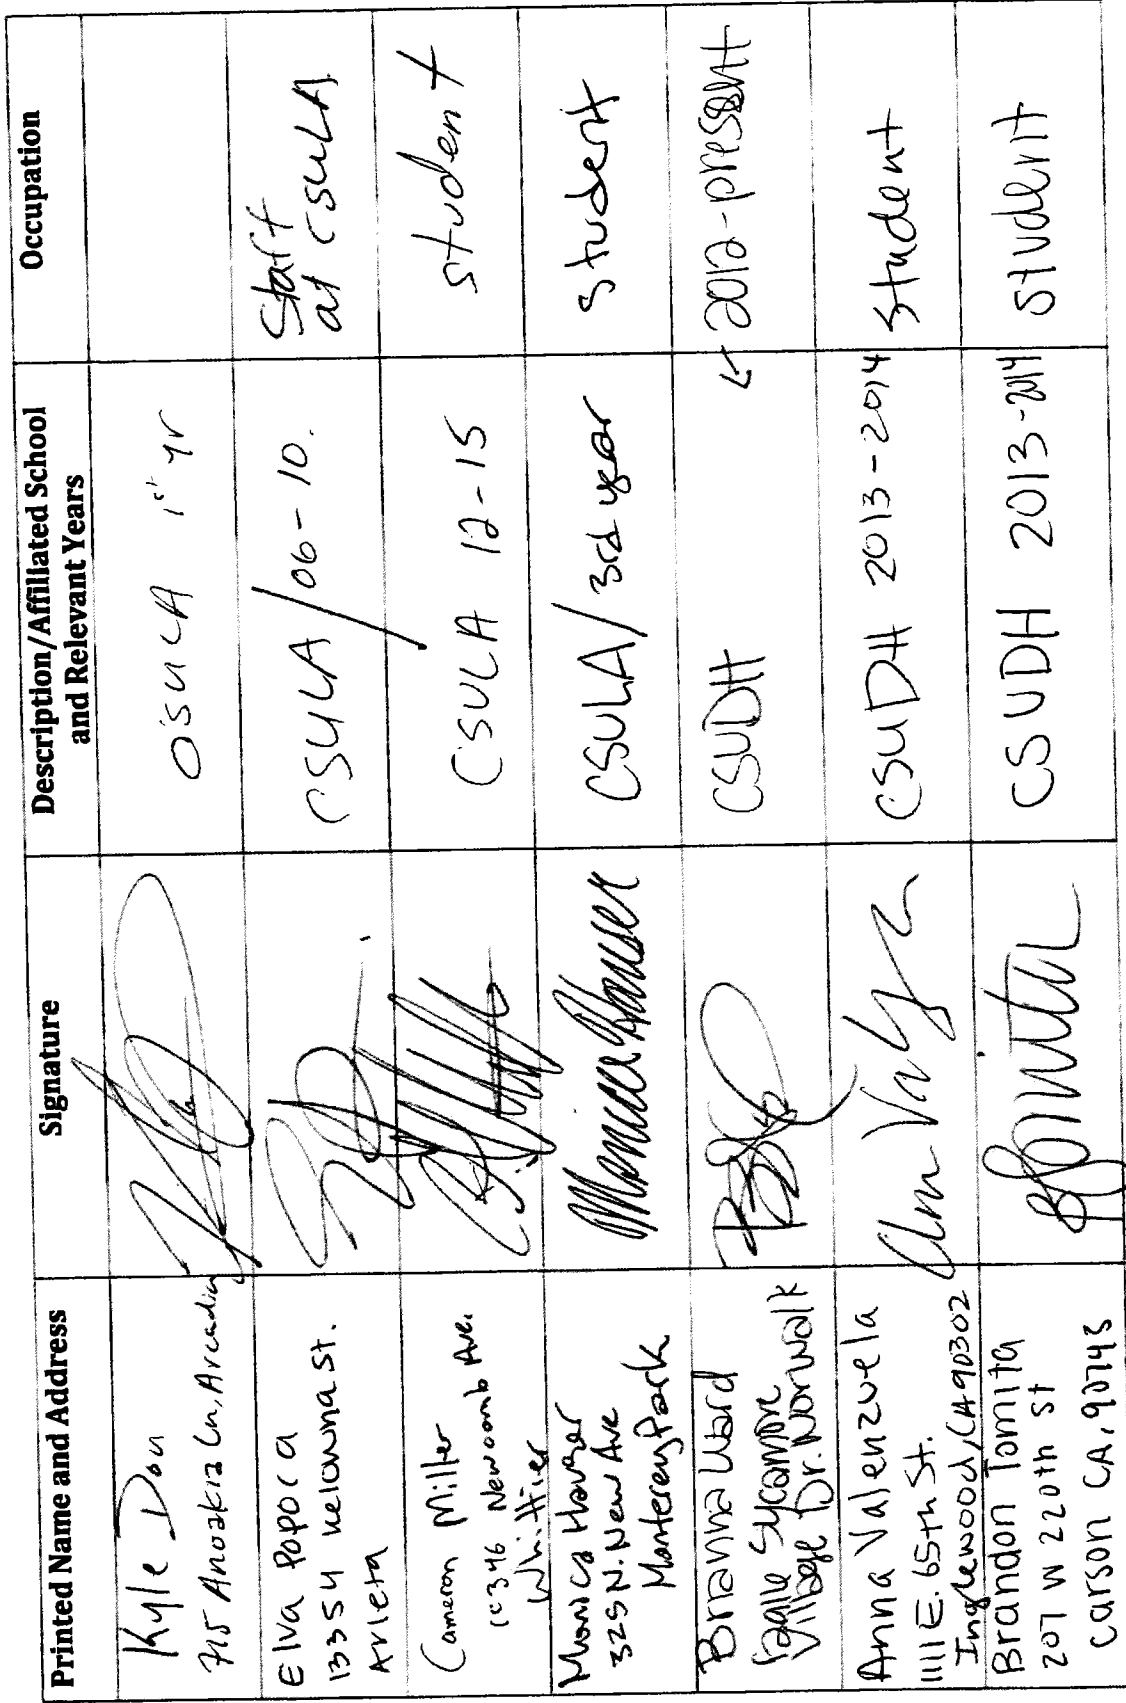 Printed Name and Address
Signature
Description/Affiliated School
and Relevant Years
Occupation
Kyle Dou
715 Anoakia Ln, Arcadia
CSULA 1st yr
Elva Popoca
13354 Kelowna St.
Arleta
CSULA / 06-10.
Staff
at CSULA
Cameron Miller
Newcomb Ave.
Whittier
CSULA 12-15
student
Monica Hauser
325 N. New Ave
Monterey Park
Monica Hauser
CSULA / 3rd year
Student
Brianna Ward
Sycamore
Village Dr. Norwalk
CSUDH
← 2012-present
Anna Valenzuela
1111 E. 65th St.
Inglewood, CA 90302
CSUDH 2013-2014
Student
Brandon Tomita
207 W 220th St
Carson CA, 90745
CSUDH 2013-2014
Student